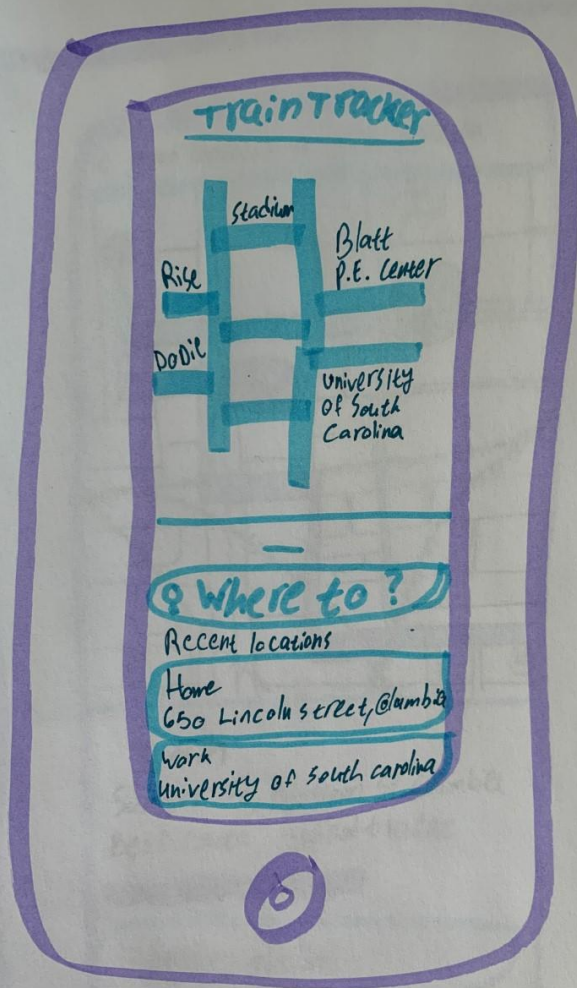 TrainTracker
Stadium
Blatt
P.E. Center
Rise
DoDie
University
of South
Carolina
Where to ?
Recent locations
Home
650 Lincoln street, Columbia
Work
University of South Carolina